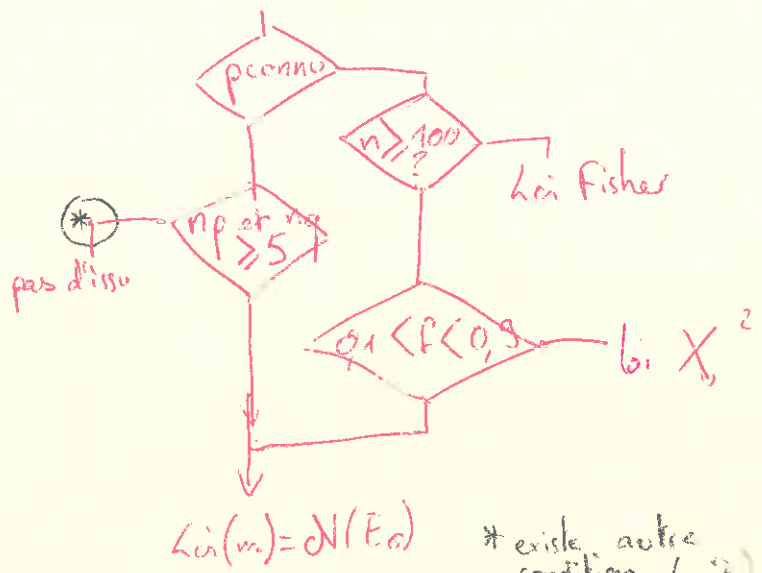 p connu
n ≥ 100
?
Loi Fisher
*
np et nq
≥ 5
pas d'issu
0,1 < f < 0,9
Loi χ²
Loi( ) = N(E, σ)
* existe autre
condition